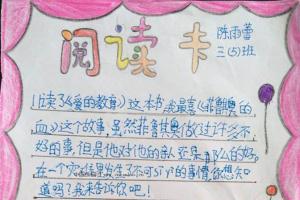 阅读卡
陈雨蕾
三(5)班
读了《爱的教育》这本书,我最喜《菲鲁奥的
血》这个故事,虽然菲鲁其奥做过许多不
好的事,但是他对他的亲人还是那么的好。
在一个 发生了不可 的事情,你想知
道吗?我来告诉你吧!